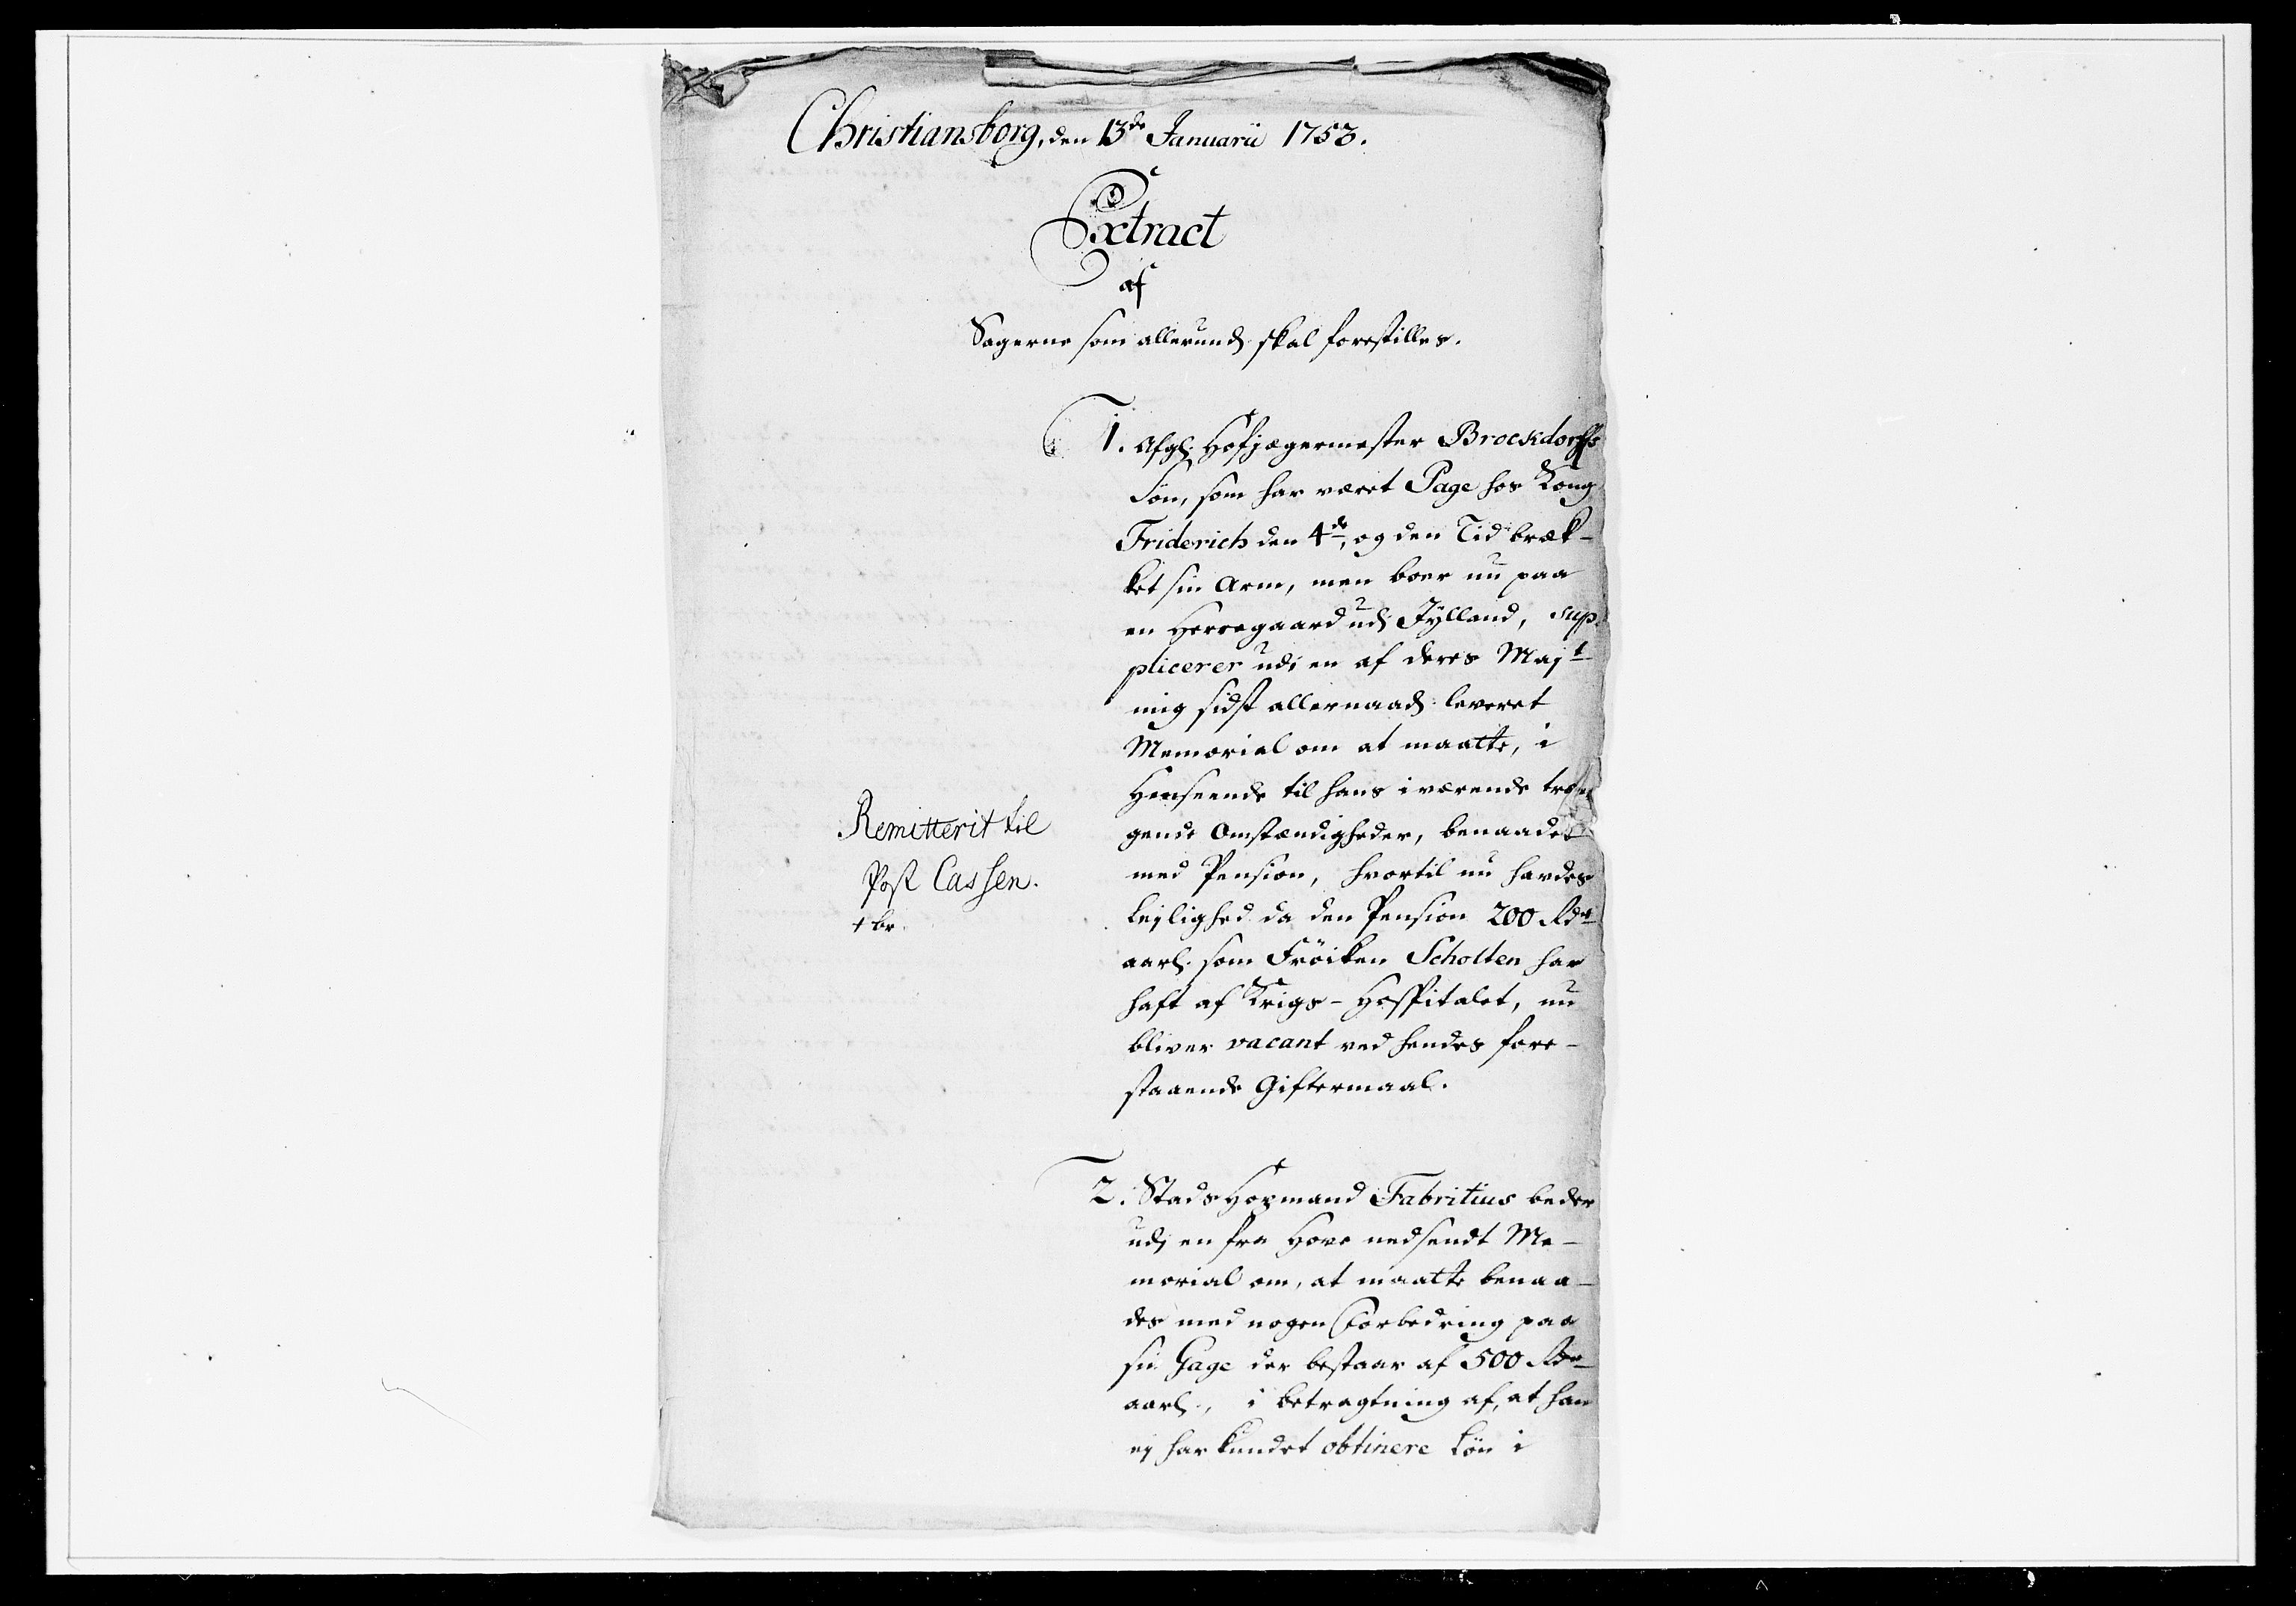 Christiansborg, den 13de Januarii 1753.
Extract
af
Sagerne som allerund. skal forestilles.
1. Afgl. Hofjægermester Brockdorffs
Søn, som har været Page hos Kong
Friderich den 4de, og den Tid bræk-
ket sin Arm, men boer nu paa
en Herregaard udj Jylland, sup-
plicerer udj en af deres Majt
mig sidst allernaad. leveret
Memorial om at maatte, i
Henseende til hans iværende træn-
gende Omstændigheder, benaades
med Pension, hvortil nu havdes
Lejlighed da den Pension 200 Rdr
aarl. som Frøiken Scholten har
haft af Krigs-Hospitalet, nu
bliver vacant ved hendes fore-
staaende Giftermaal.
Remitterit til
Post Cassen.
2. Stads Hopmand Fabritius beder
udj en fra Hove nedsendt Me-
morial om, at maatte benaa-
des med nogen Forbedring paa
sin Gage der bestaar af 500 Rdr
aarl., i betragtning af, at han
ej har kundet obtinere Løn i